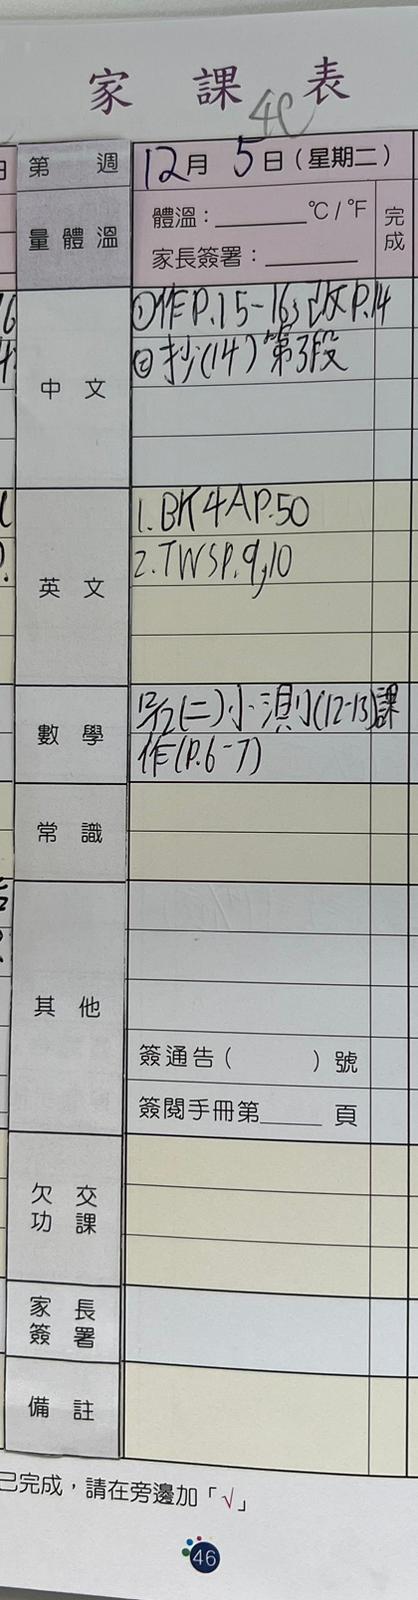 家課表
4C
第 週
12月5日(星期二)
量體溫
體溫：______°C/°F
家長簽署：______
完成
中文
①作P.15-16;改P.14
②抄(14)第3段
英文
1.BK4AP.50
2.TWSP.9,10
數學
(二)小測(12-13)課
作(P.6-7)
常識
其他
簽通告( )號
簽閱手冊第____頁
欠交功課
家長簽署
備註
已完成，請在旁邊加「√」
46